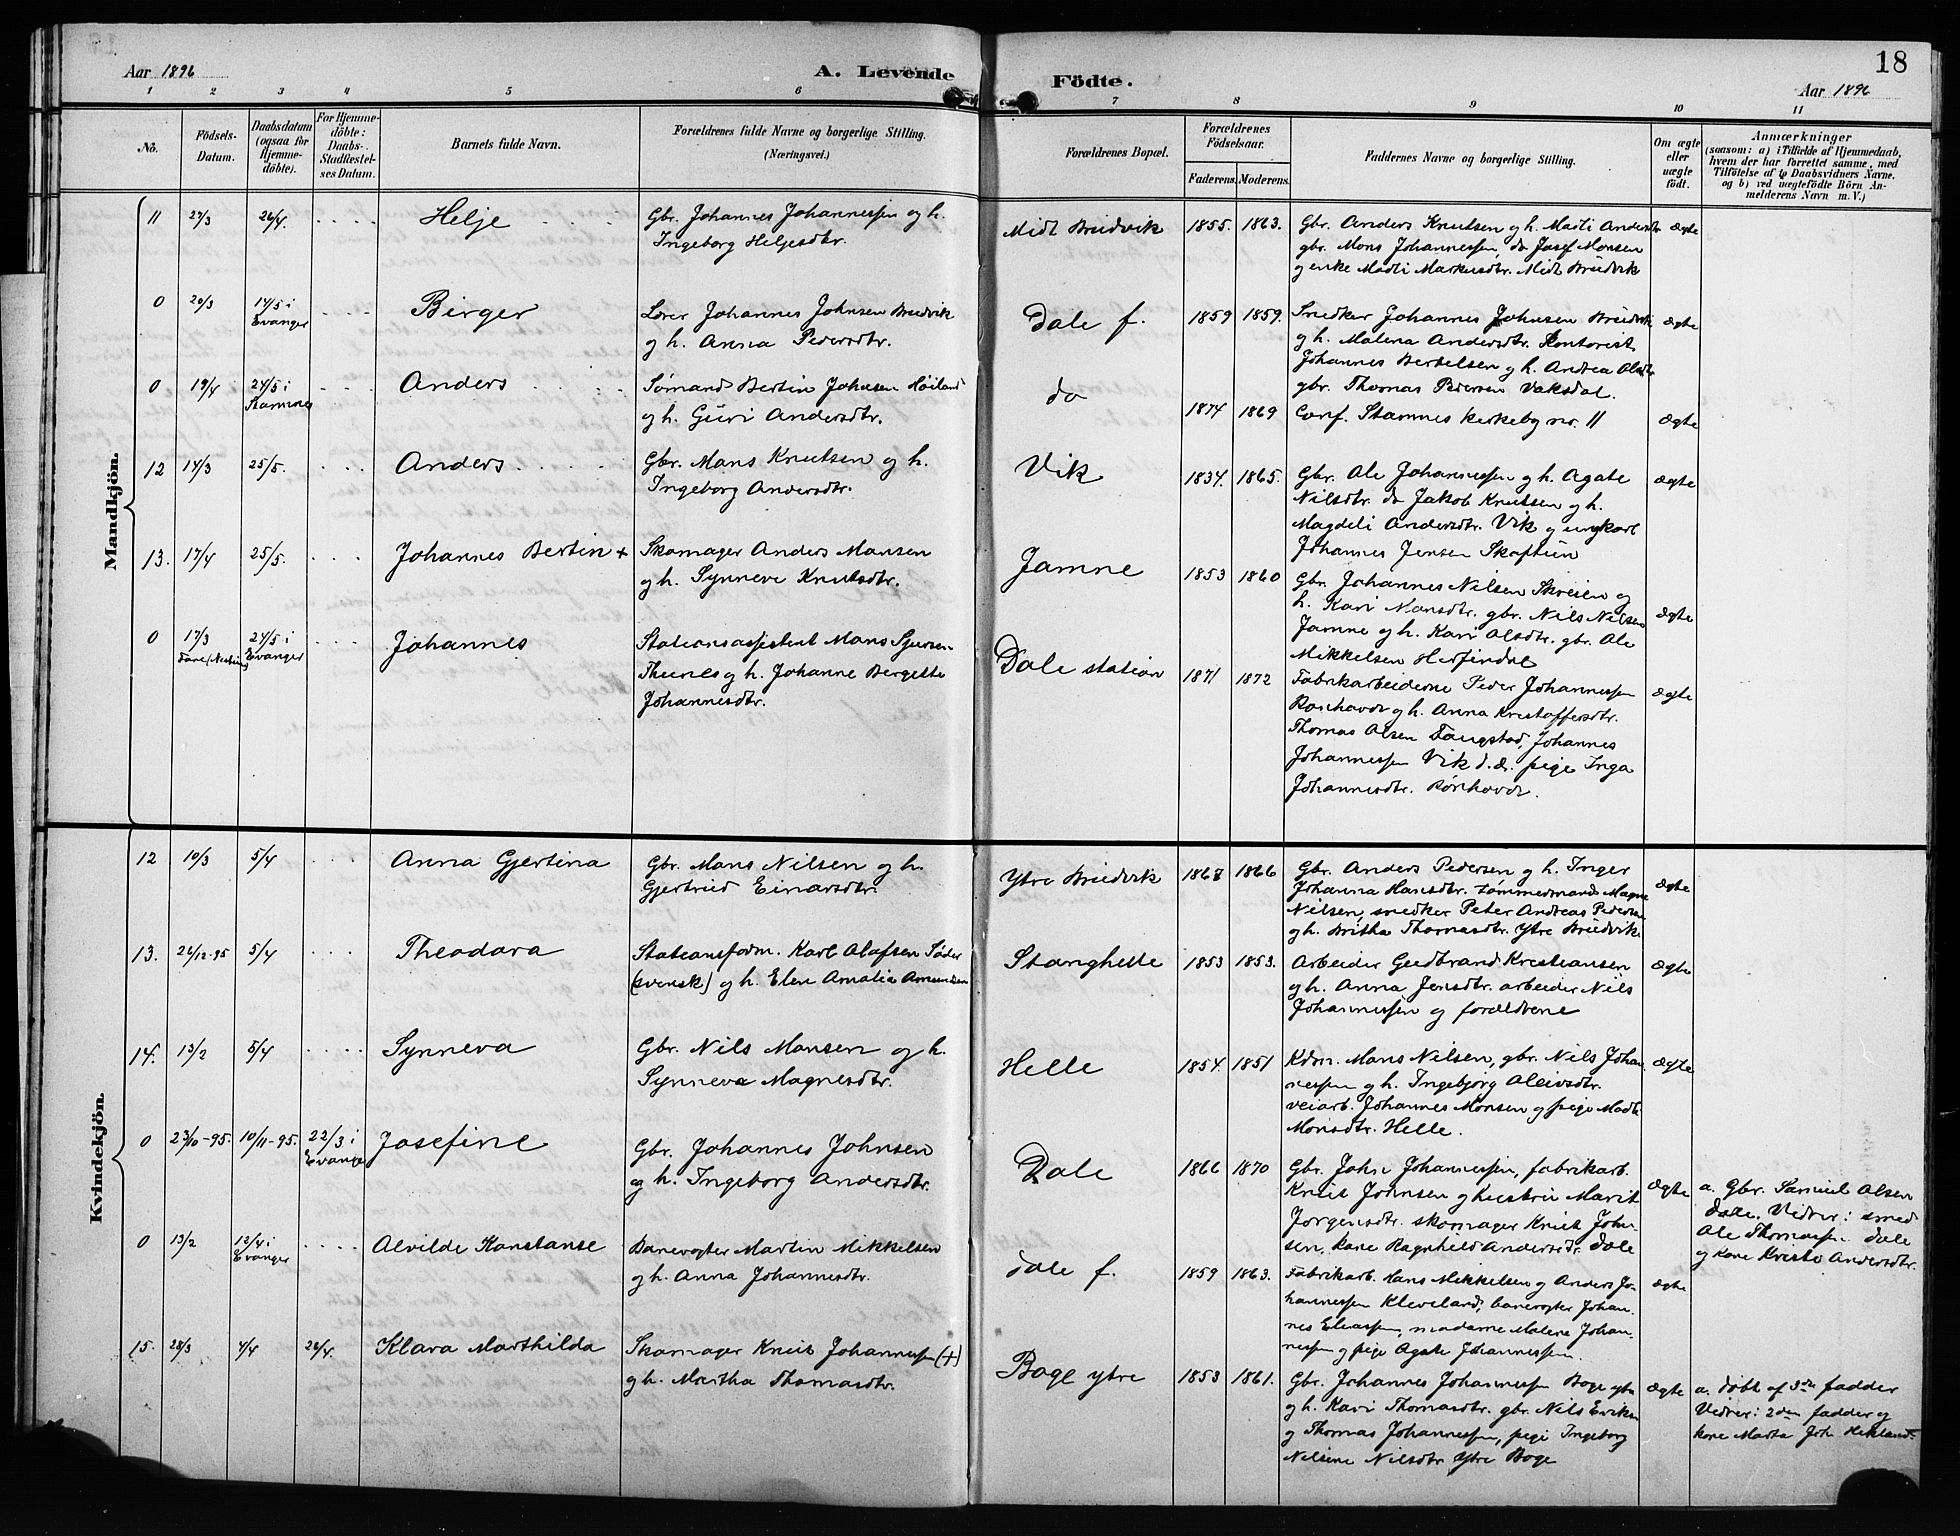 18
Aar 1896
A. Levende
Födte.
Aar 1896
1 2 3 4 5 6 7 8 9 10 11
No.
Födsels-
Datum.
Daabsdatum
(ogsaa for
Hjemme-
döbte).
For Hjemme-
döbte:
Daabs-
Stadfæstel-
ses Datum.
Barnets fulde Navn.
Forældrenes fulde Navne og borgerlige Stilling.
(Næringsvei.)
Forældrenes Bopæl.
Forældrenes
Födselsaar.
Faderens. Moderens.
Faddernes Navne og borgerlige Stilling.
Om ægte
eller
uægte
födt.
Anmærkninger
(saasom: a) i Tilfælde af Hjemmedaab,
hvem der har forrettet samme, med
Tilföielse af to Daabsvidners Navne,
og b) ved uægtefödte Börn An-
melderens Navn m. V.)
Mandkjön.
11 27/3 26/4. Helje
Gbr. Johannes Johannessen og h.
Ingeborg Heljesdtr.
Midt Bruvik 1855. 1863.
Gbr. Anders Knutsen og h. Madli Andersdtr
gbr. Mons Johannessen, do Josef Monsen
og enke Madli Markusdtr. Midt Bruvik
ægte
0 20/3 14/5 i
Evanger
Birger
Lærer Johannes Johnsen Bruvik
og h. Anna Pedersdtr.
Dale f. 1859 1859.
Snedker Johannes Johnsen Bruvik
og h. Malena Andersdtr. Kontorist
Johannes Bertelsen og h. Andrea Olsdtr
gbr. Thomas Pedersen Vaksdal.
ægte
0 19/4 24/5 i
Stamnes
Anders
Sømand Bertin Johnsen Höiland
og h. Guri Andersdtr.
do
1874 1869 Conf. Stamnes kirkebog nr. 11 ægte
12 14/3 25/5. Anders
Gbr. Mons Knutsen og h.
Ingeborg Andersdtr.
Vik 1834. 1865.
Gbr. Ole Johannessen og h. Agate
Nilsdtr. do Jakob Knutsen og h.
Magdeli Andersdtr. Vik og ungkarl
Johannes Jensen Skaftun
ægte
13. 17/4 25/5. Johannes Bertin +
Skomager Anders Monsen
og h. Synneve Knutsdtr.
Jamne 1853 1860
Gbr. Johannes Nilsen Skreien og
h. Kari Monsdtr. gbr. Nils Nilsen
Jamne og h. Kari Olsdtr. gbr. Ole
Mikkelsen Herfindal
ægte
0 17/3 24/5 i
Evanger
Johannes
Stationsassistent Mons Sjursen
Thunes og h. Johanne Bergette
Johannesdtr.
Dale station 1871 1872
Fabrikarbeiderne Peder Johannessen
og h. Anna Kristoffersdtr.
Thomas Olsen Fangstad, Johannes
Johannessen Vik d.æ. pige Inga
Johannesdtr.
ægte
Kvindekjön.
12 10/3 5/4 Anna Gjertina
Gbr. Mons Nilsen og h.
Gjertrud Einarsdtr.
Ytre Bruvik 1867 1866
Gbr. Anders Pedersen og h. Inger
Johanna Hansdtr. tømmermand Magne
Nilsen, snedker Peter Andreas Pedersen
og h. Britha Thomasdtr. Ytre Bruvik
ægte
13. 26/12-95 5/4 Theodora
Stationsform. Karl Olafsen Söder
(svensk) og h. Elen Amalia Amundsen
Stanghelle 1853 1853.
Arbeider Gudbrand Kristiansen
og h. Anna Jensdtr. arbeider Nils
Johannessen og forældrene
ægte
14. 13/2 5/4 Synneva
Gbr. Nils Monsen og h.
Synneva Magnesdtr.
Helle 1854. 1851
Kdm. Mons Nilsen, gbr. Nils Johan-
nessen og h. Ingebjörg Oleivsdtr.
veiarb. Johannes Monsen og pige Madli
Monsdtr. Helle.
ægte
0 23/10-95. 10/11-95. 22/3 i
Evanger
Josefine
Gbr. Johannes Johnsen
og h. Ingeborg Andersdtr.
Dale 1866 1870
Gbr. John Johannessen, fabrikarb.
Knut Johnsen og hustru Marit
Jorgensdtr. skomager Knut John-
sen, kone Ragnhild Andersdtr. Dale
ægte
a. Gbr. Samuel Olsen
Dale. Vidner: smed
Ole Thomassen Dale
og kone Kristi Andersdtr.
0 13/2 12/4 i
Evanger
Alvilde Konstanse
Banevogter Martin Mikkelsen
og h. Anna Johannesdtr.
Dale f. 1859 1863.
Fabrikarb. Hans Mikkelsen og Anders Jo-
hannessen Kleveland, banevogter Johan-
nes Eliassen, madame Malene Johan-
nessen og pige Agate Johannessen.
ægte
15. 28/3 4/4 26/4 Klara Marthilda
Skomager Knut Johannessen (+)
og h. Martha Thomasdtr.
Boge ytre 1853 1861.
Gbr. Johannes Johannessen Boge ytre
og h. Kari Thomasdtr. gbr. Nils Eriksen
og Thomas Johannessen, pige Ingeborg
Nilsine Nilsdtr Ytre Boge
ægte
a. döbt af 3die fadder
Vidner: 2den fadder og
kone Marta Joh. Hekland.